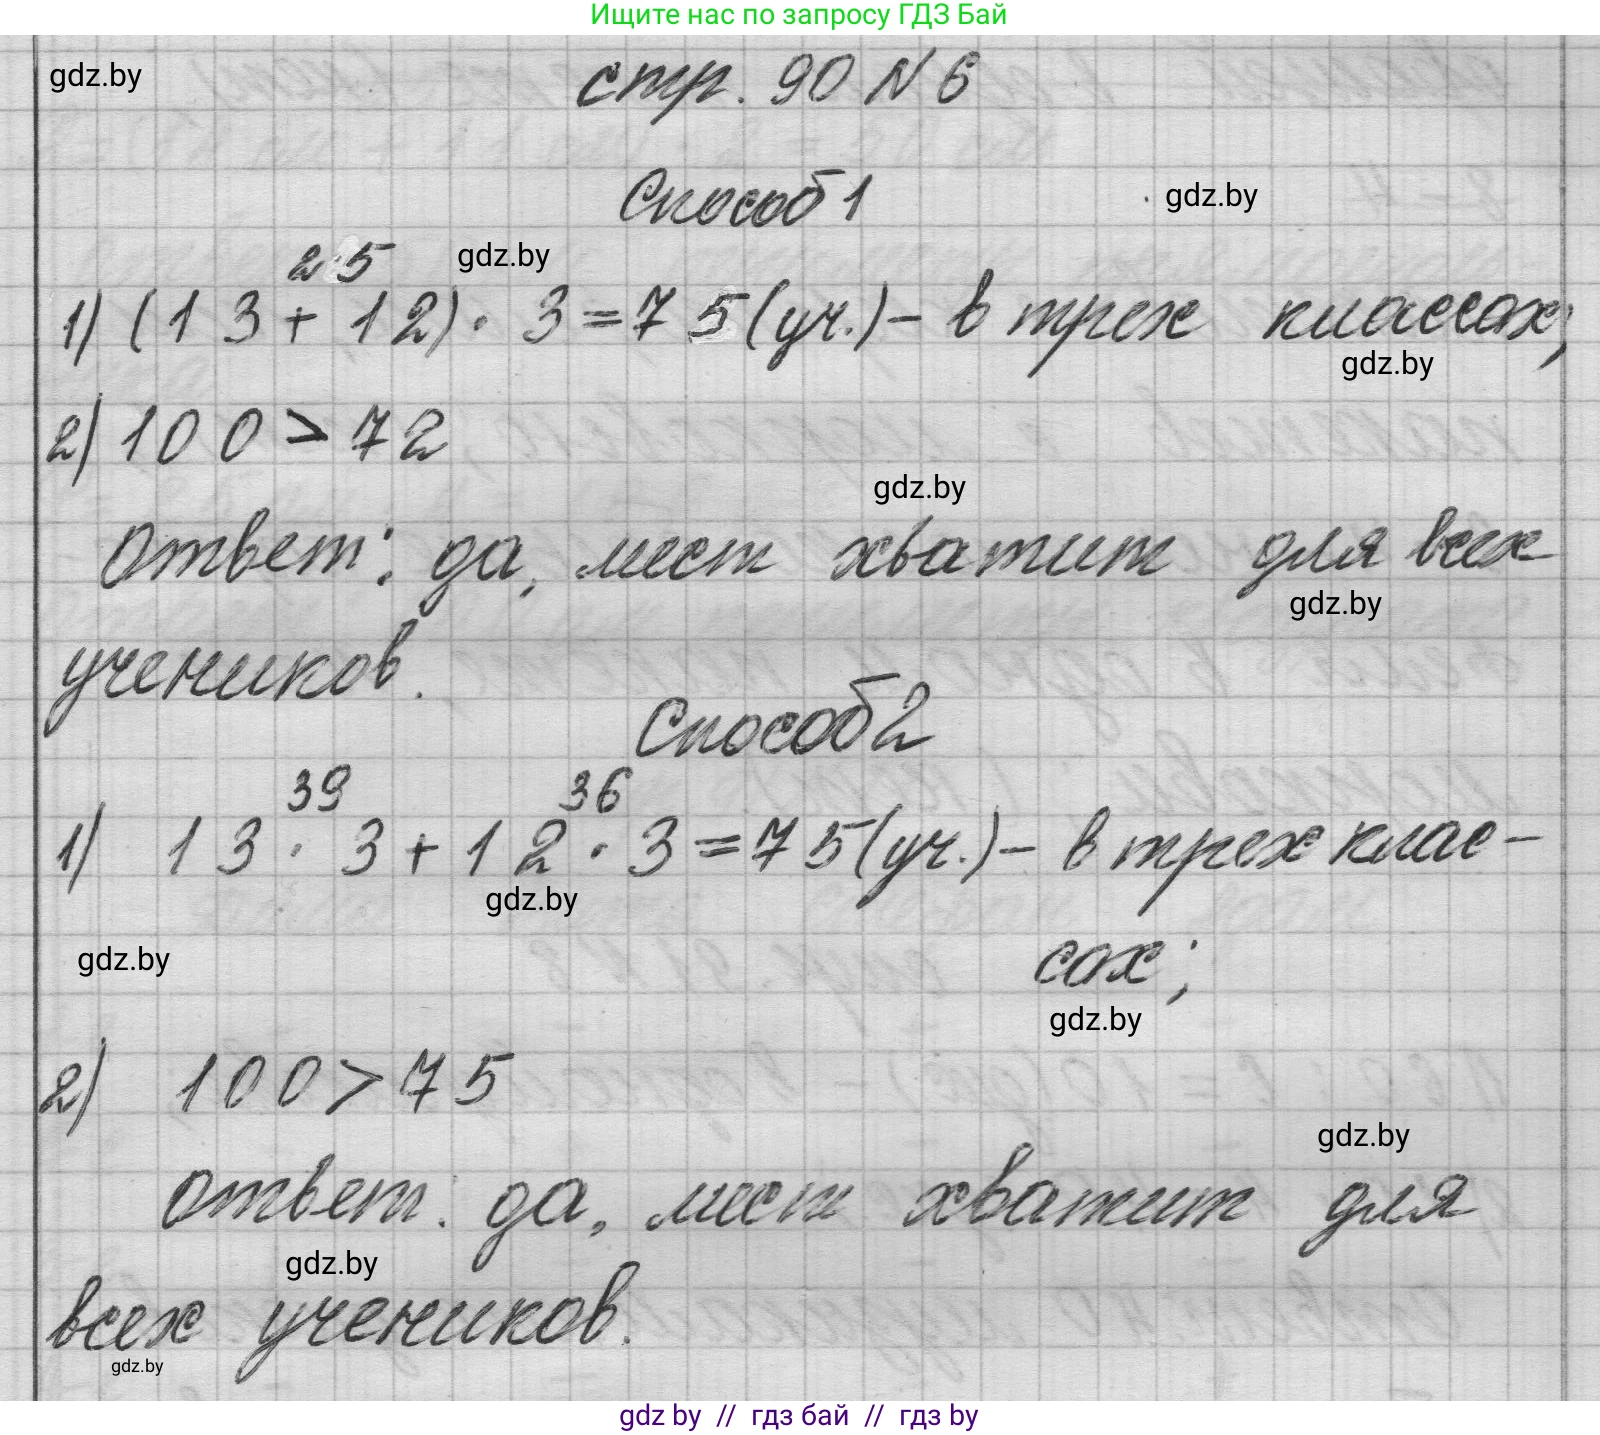 Ищите нас по запросу ГДЗ Бай
gdz.by
стр. 90 N 6
Способ 1
gdz.by
25
gdz.by
1) (13 + 12) · 3 = 75 (уч.) – в трех классах;
gdz.by
2) 100 > 72
gdz.by
Ответ: да, мест хватит для всех
gdz.by
учеников.
Способ 2
39 36
1) 13 · 3 + 12 · 3 = 75 (уч.) – в трех клас–
gdz.by
gdz.by
сах;
gdz.by
2) 100 > 75
gdz.by
Ответ: да, мест хватит для
gdz.by
всех учеников.
gdz.by
gdz by // гдз бай // гдз by